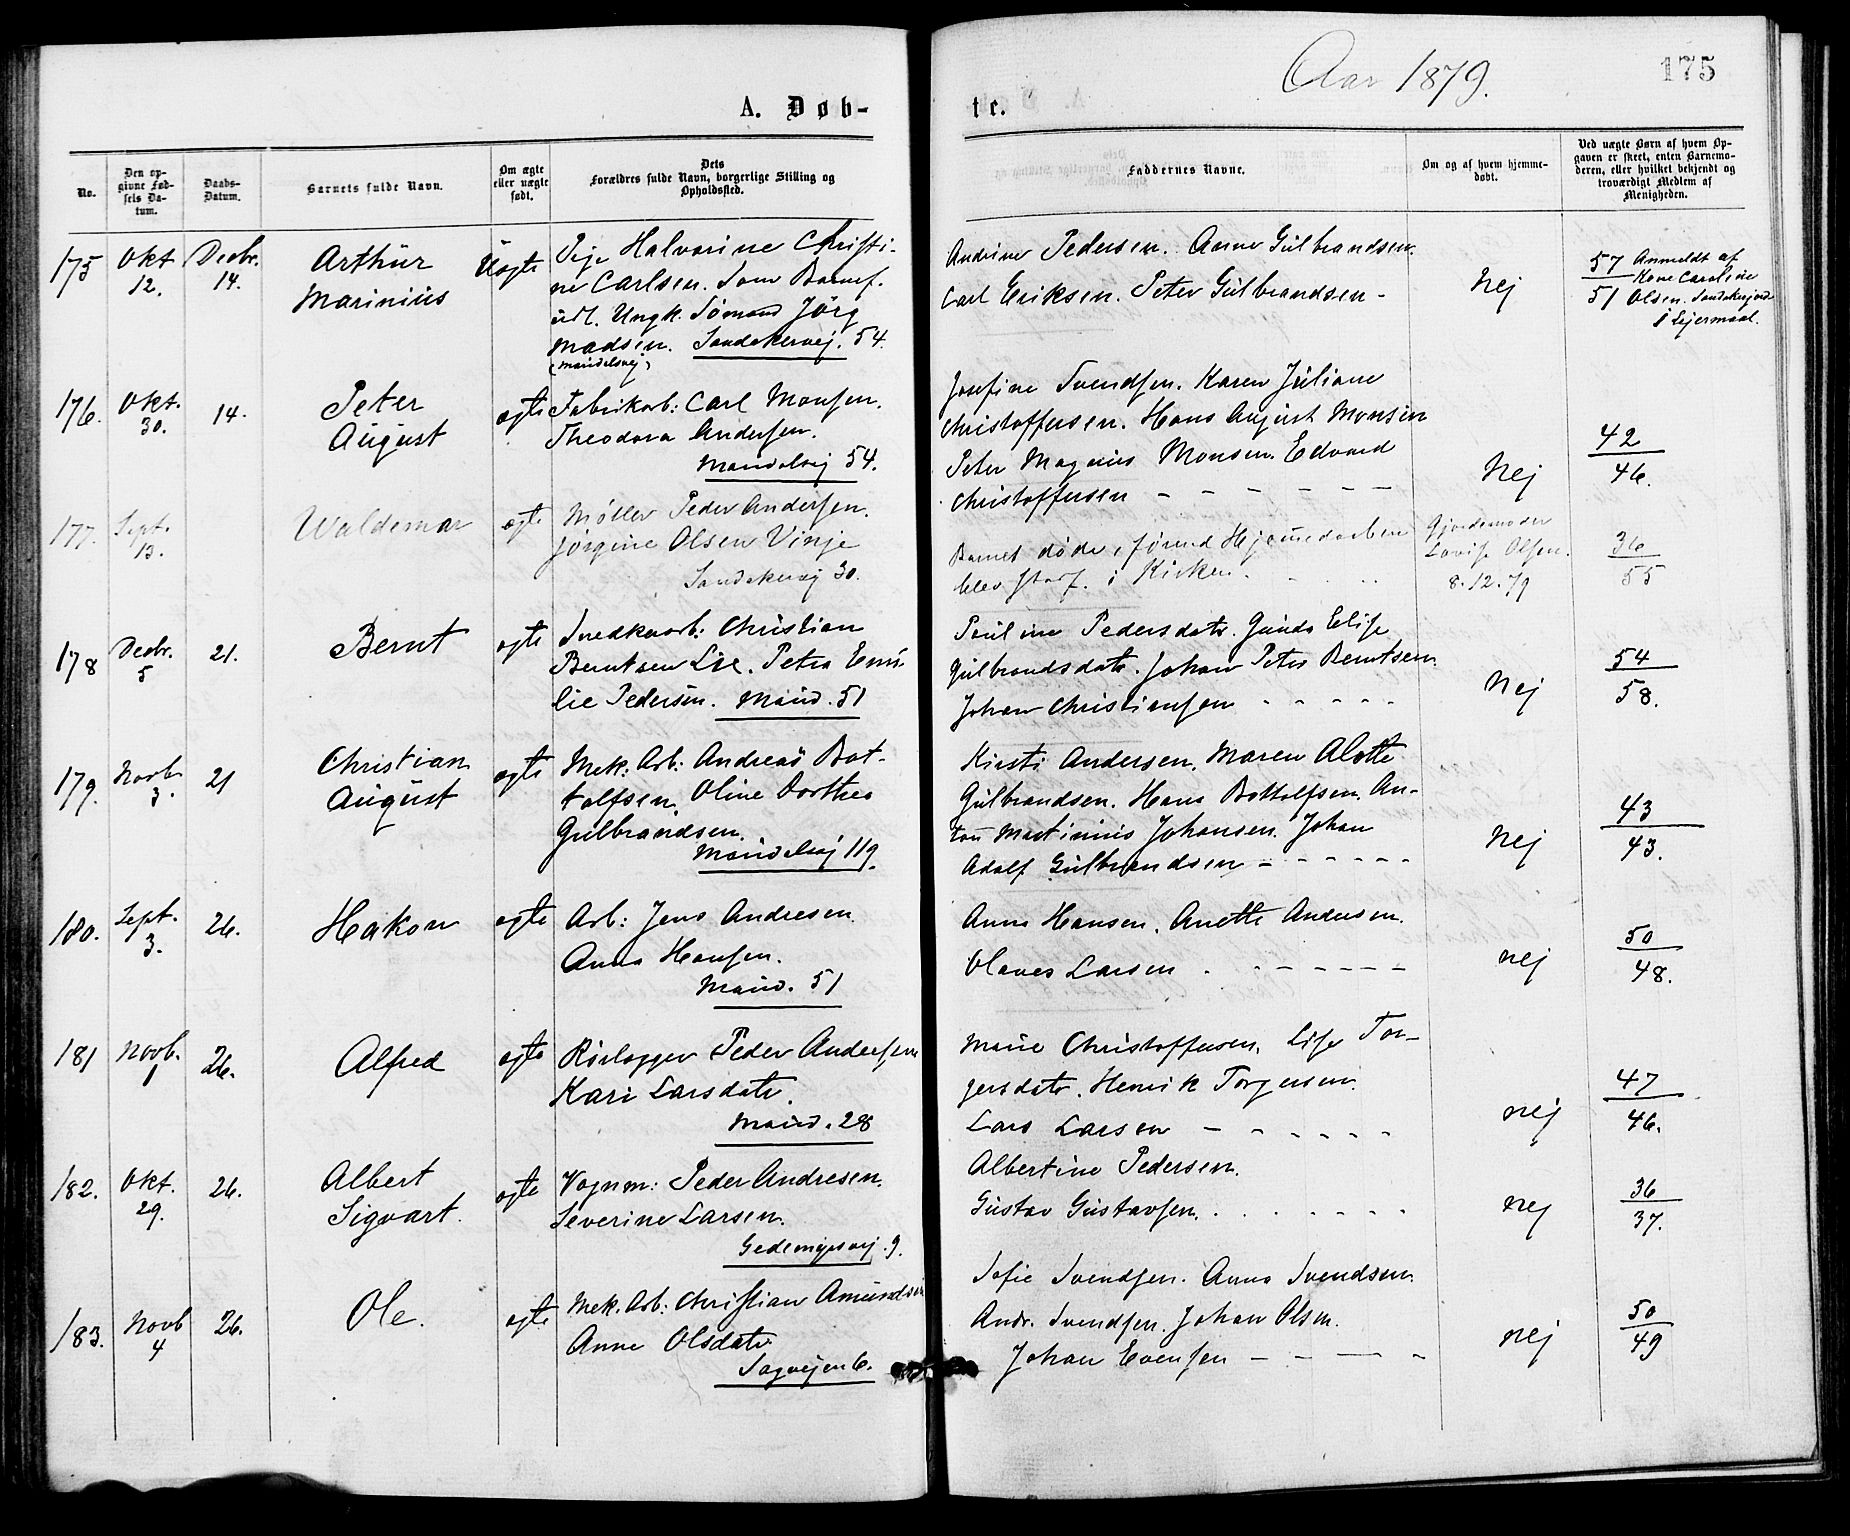 Aar 1879.
175
A. Døb-
te.
No.
Den op-
givne Fød-
sels Da-
tum.
Daabs-
Datum.
Barnets fulde Navn.
Om ægte
eller uægte
født.
Dets
Forældres fulde Navn, borgerlige Stilling og
Opholdssted.
Faddernes Navne.
Om og af hvem hjemme-
døbt.
Ved uægte Børn af hvem Op-
gaven er skeet, enten Barnemo-
deren, eller hvilket bekjendt og
troværdigt Medlem af
Menigheden.
175
Okt
12.
Decbr.
14.
Arthur
Marinius
Uægte
Pige Halvorine Christi-
ne Carlsen. Som Barnef.
udl. Ungk. Sømand Jörg
Madsen. Sandakervej. 54.
(Maridalsvej)
Andrine Pedersen. Anne Gulbrandsen.
Carl Eriksen. Peter Gulbrandsen -
Nej
57
51
Anmeldt af
Kone Caroline
Olsen. Sandakervej
1 Lejermaal.
176.
Okt.
30.
14.
Peter
August
ægte
Fabrikarb: Carl Monsen.
Theodora Andersen.
Maridalsvej 54.
Josefine Svendsen. Karen Juliane
Christoffersen. Hans August Monsen
Peter Magnus Monsen. Edvard
Christoffersen - - - - - -
Nej
42
46.
177.
Sept.
13.
Waldemar
ægte
Møller Peder Andersen.
Jørgine Olsen Vinje
Sandakervej 30.
Barnet døde, førend Hjemmedaaben
blev stadf. i Kirken.
Gjordemoder
Lovise Olsen.
8.12.79
36
55
178
Decbr.
5
21.
Bernt
ægte
Snedkerarb: Christian
Berntsen Lie. Petra Emi-
lie Pedersen. Marid. 51
Pauline Pedersdatr. Gunda Elise
Gulbrandsdatr. Johan Peter Berntsen.
Johan Christiansen - - - - -
Nej
54
58.
179.
Novb.
3.
21
Christian
August
ægte
Mek: Arb: Andreas Bot-
tolfsen. Oline Dorthea
Gulbrandsen.
Maridalsvej 119.
Kirsti Andersen. Maren Alette
Gulbrandsen. Hans Bottolfsen. An-
ton Martinius Johansen. Johan
Adolf Gulbrandsen - - - - - -
Nej
43
43.
180.
Sept.
3.
26.
Hakon
ægte
Arb: Jens Andresen.
Anna Hansen.
Marid. 51
Anna Hansen. Anette Andersen.
Olaves Larsen. - - - - - -
nej
50
48.
181
Novb.
1
26.
Alfred
ægte
Rørlægger Peder Andersen
Kari Larsdatr.
Marid. 28
Marie Christoffersen. Lise Tor-
gersdatr. Henrik Torgersen.
Lars Larsen - - - - - -
nej
47
46.
182.
Okt.
29.
26.
Albert
Sigvart.
ægte
Vognm: Peder Andresen.
Severine Larsen.
Gedemyrsvej. 9.
Albertine Pedersen.
Gustav Gustavsen.
nej
36
37.
183.
Novb
4
26.
Ole.
ægte
Mek. Arb: Christian Amundsen
Anne Olsdatr.
Sagvejen 6.
Sofie Svendsen. Anna Svendsen.
Andr. Svendsen. Johan Olsen.
Johan Evensen - - - - -
nej
50
49